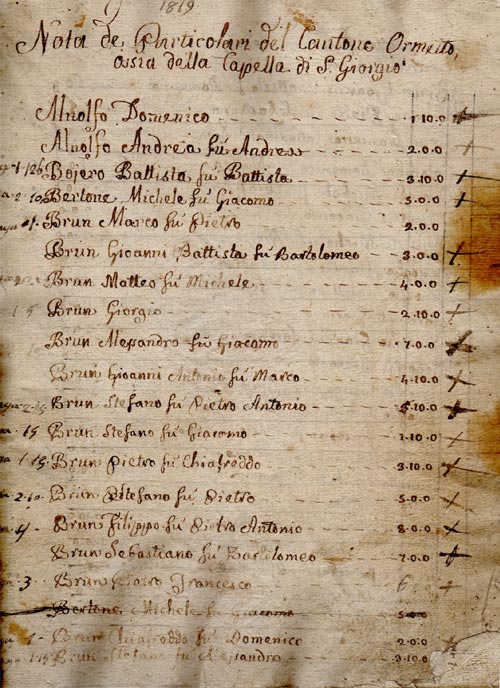 1819
Nota de Particolari del Cantone Ormetto,
ossia della Capella di S. Giorgio
Domenico 1.10.0
Andrea fù Andrea 2.0.0
Bojero Battista fù Battista 3.10.0
Bertone Michele fù Giacomo 5.0.0
Brun Marco fù Pietro 2.0.0
Brun Gioanni Battista fù Bartolomeo 3.0.0
Brun Matteo fù Michele 4.0.0
Brun Giorgio 2.10.0
Brun Alessandro fù Giacomo 7.0.0
Brun Gioanni Antonio fù Marco 4.10.0
Brun Stefano fù Pietro Antonio 5.10.0
15 Brun Stefano fù Giacomo 1.10.0
1.15 Brun Pietro fù Chiafreddo 3.10.0
2.10 Brun Stefano fù Pietro 5.0.0
4 Brun Filippo fù Pietro Antonio 8.0.0
Brun Sebastiano fù Bartolomeo 7.0.0
3 Brun Francesco 6
Bertone Michele fù Giacomo 5.0.0
1 Brun Chiafreddo fù Domenico 2.0.0
1.15 Brun Stefano fù Alessandro 3.10.0